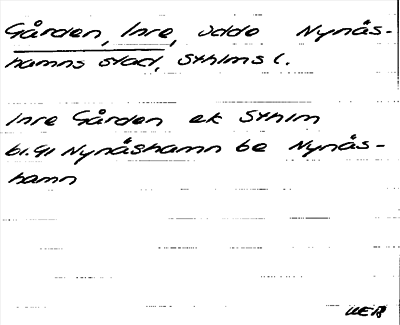 Gården, Inre, udde Nynäs-
hamns stad, Sthlms l.
Inre Gården ek Sthlm
bl.91 Nynäshamn be Nynäs-
hamn